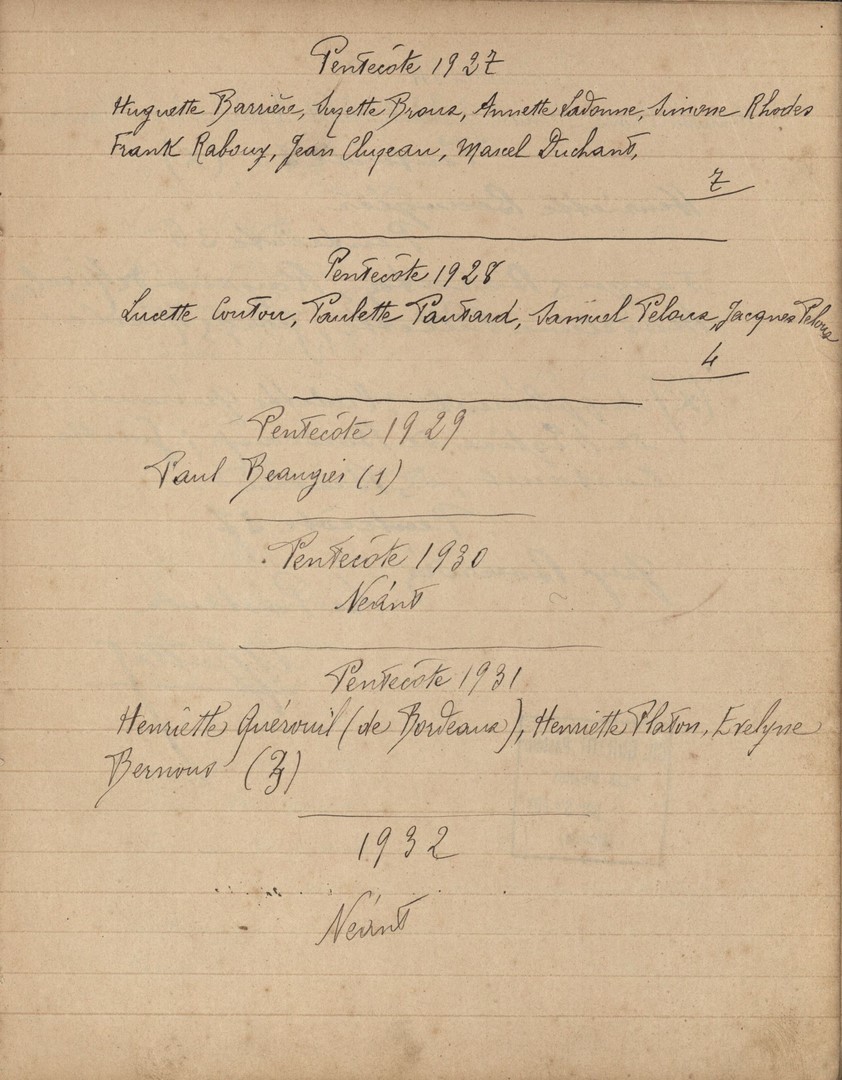 Pentecôte 1927
Huguette Barrière, Suzette Broux, Annette Ladonne, Simone Rhodes
Frank Raboux, Jean Cluzeau, Marcel Duchant,
7
Pentecôte 1928
Lucette Coutou, Paulette Pautard, Samuel Peloux, Jacques Peloux
4
Pentecôte 1929
Paul Beaugier (1)
Pentecôte 1930
Néant
Pentecôte 1931
Henriette Guérouil (de Bordeaux), Henriette Platon, Evelyne
Bernous
1932
Néant